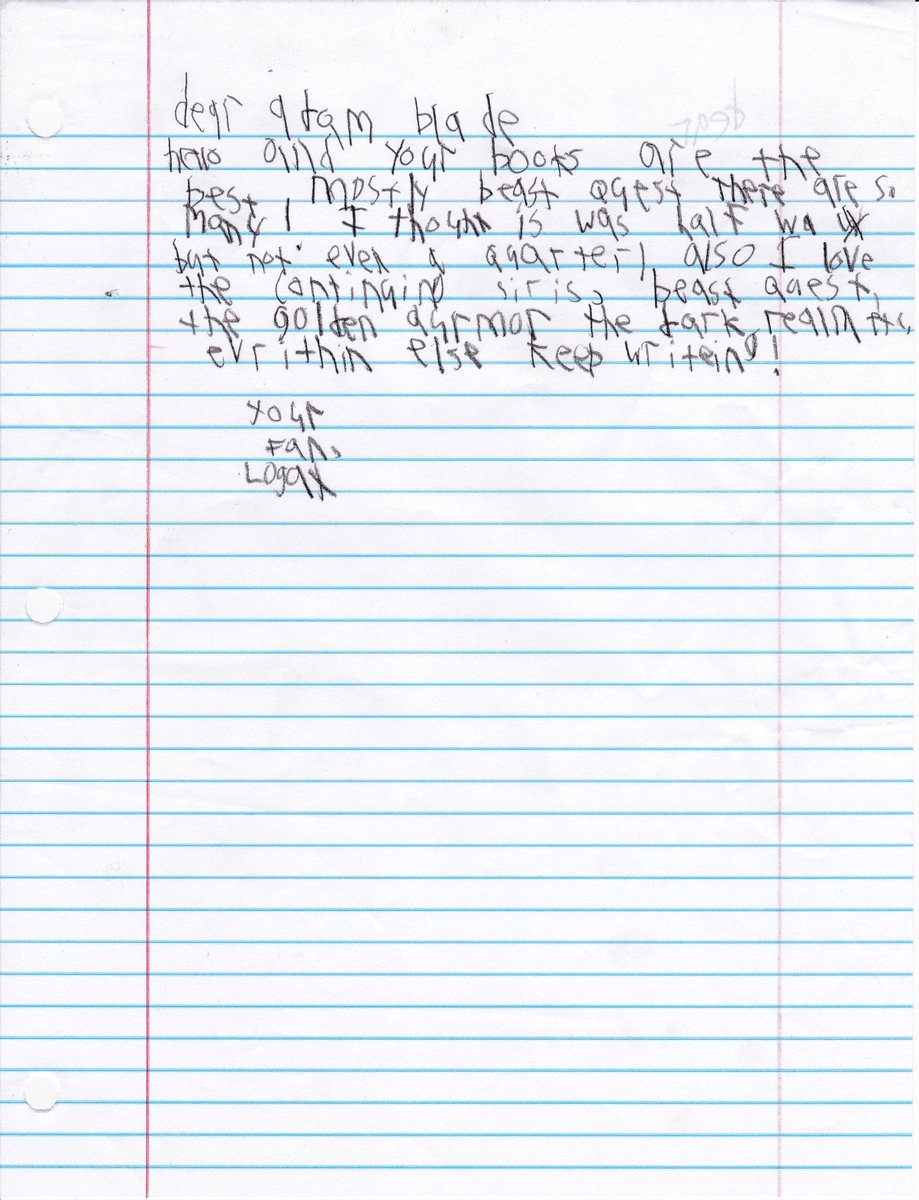 dear adam blade
hello and your books are the
best, mostly beast quest there are so
many! I thought is was half wa
but not even a quarter! also I love
the continuind siris, beast quest,
the golden aurmor the dark realm etc,
evrithin else keep writein!
your
Fan,
Logan